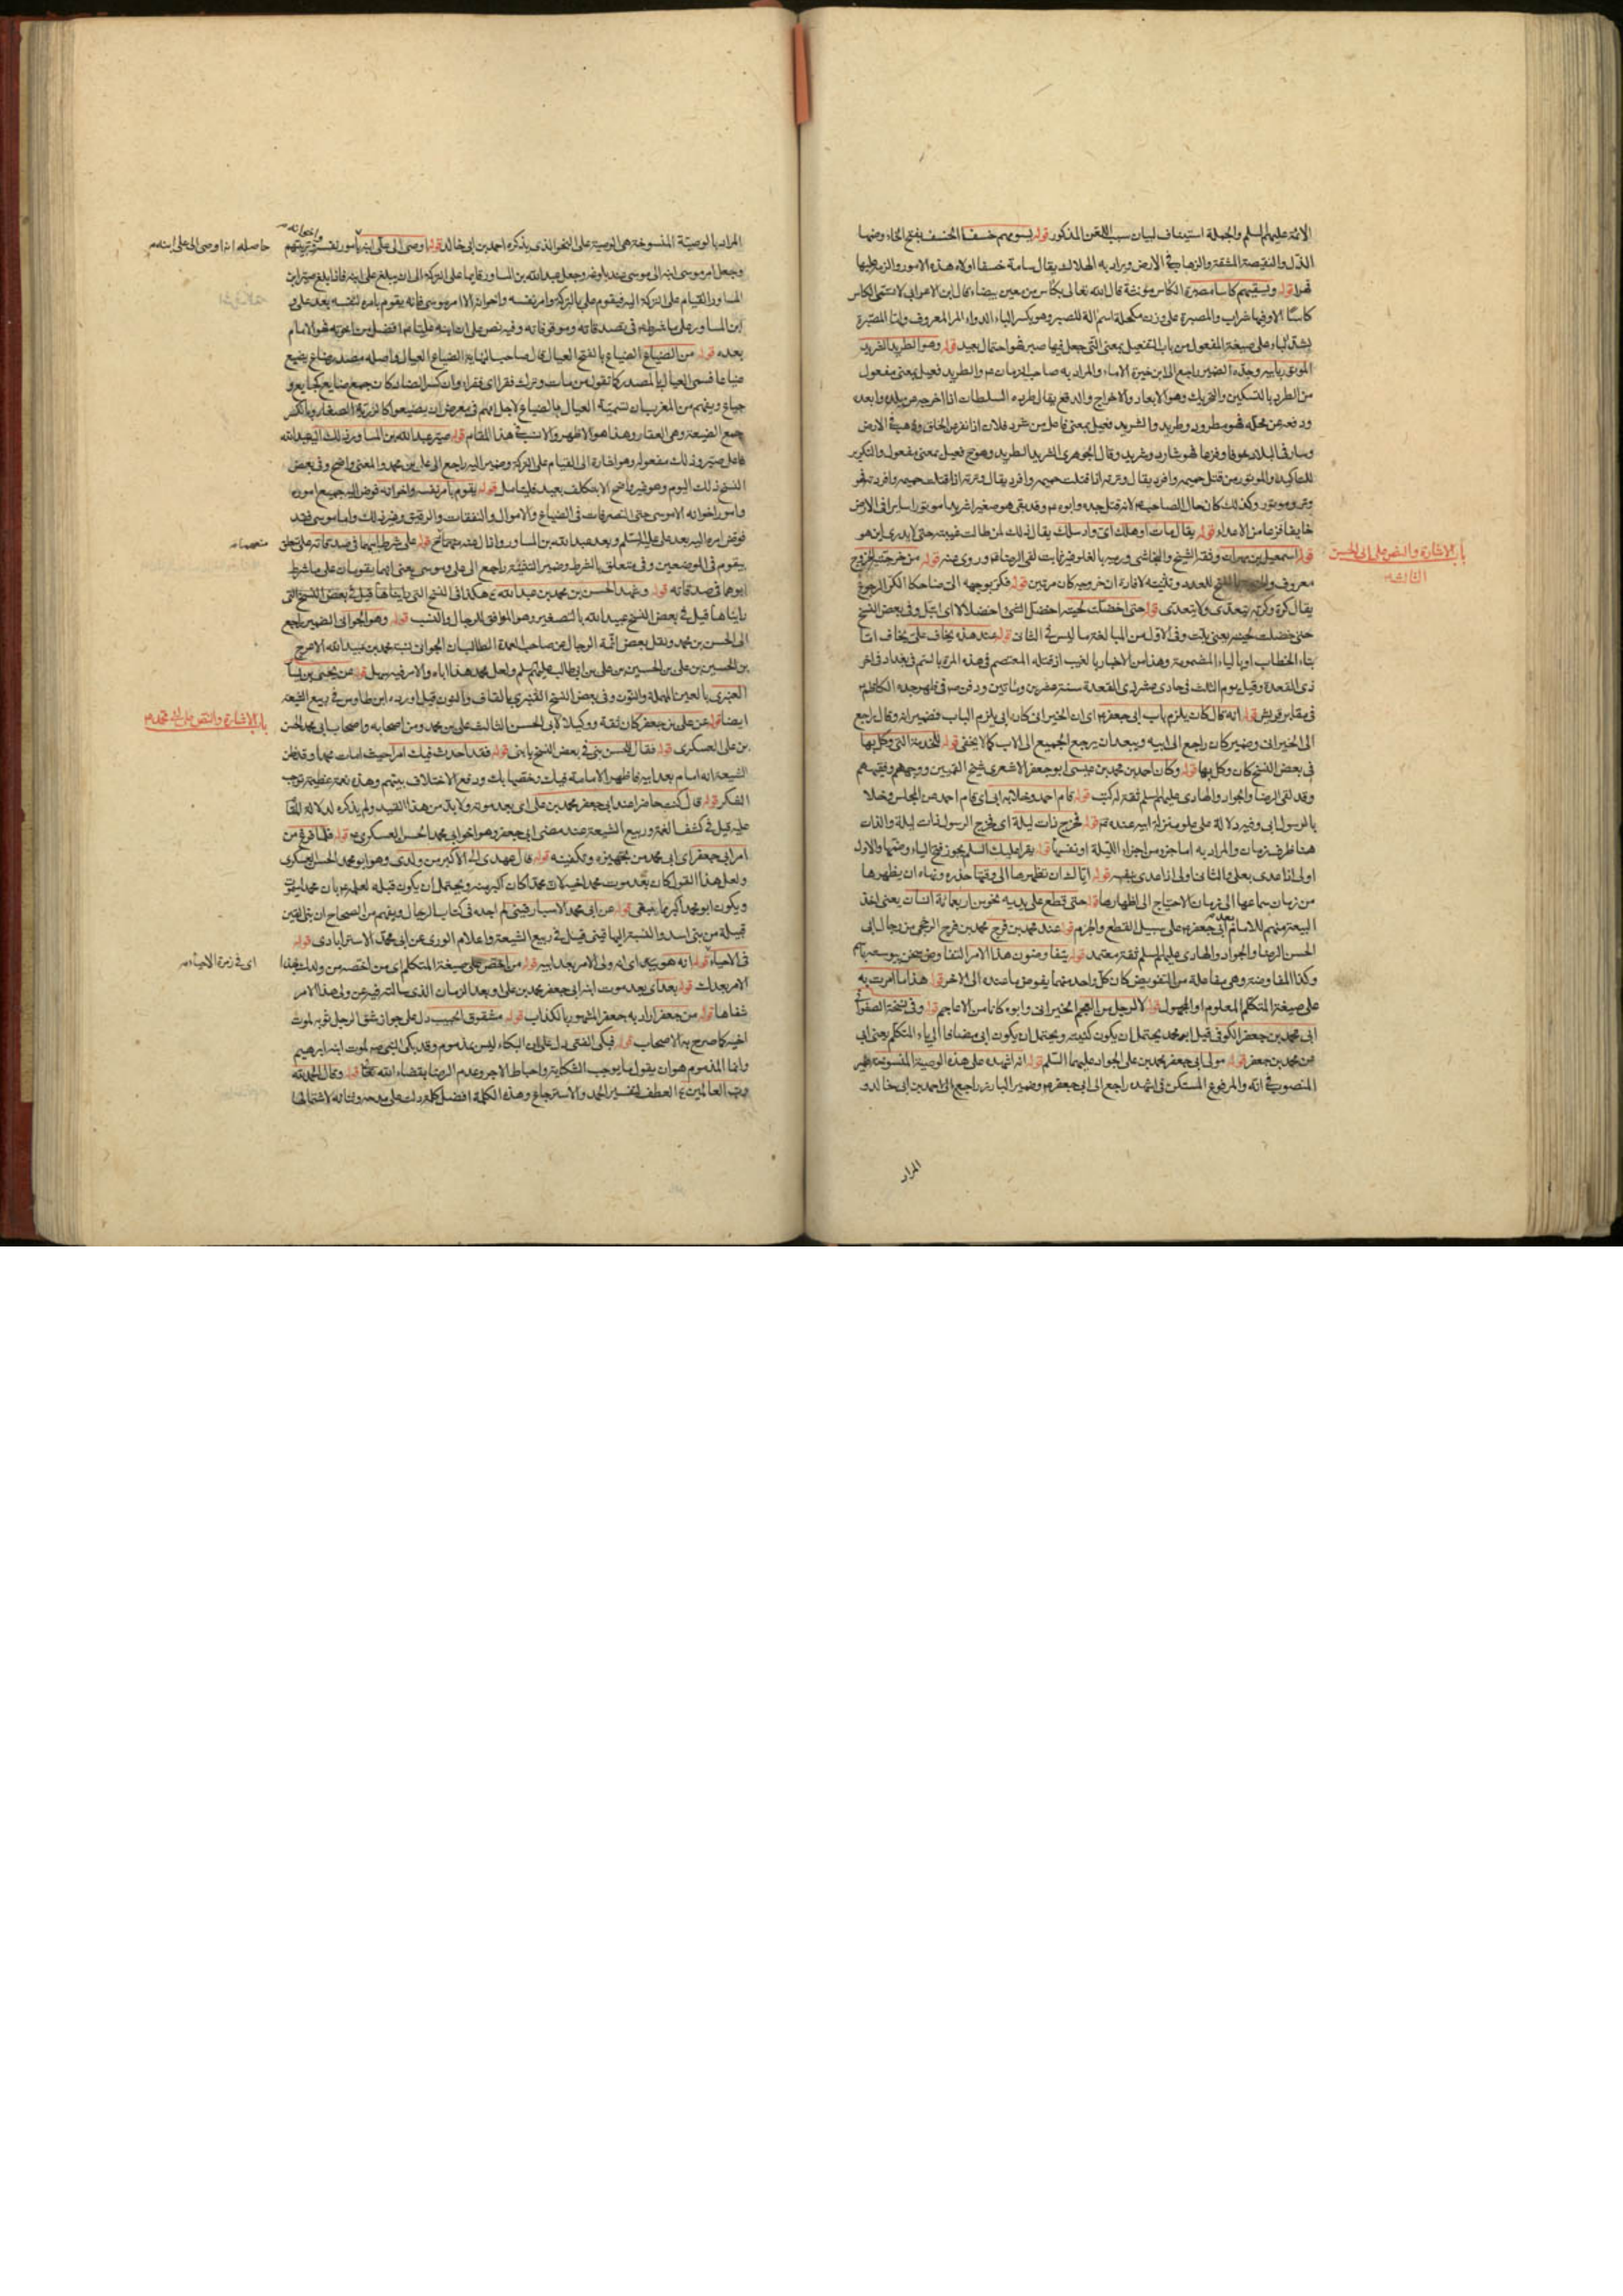 الائمة عليهم السلم والجملة استيناف لبيان سبب اللعن المذكور قوله يسومهم خسفا الخسف بفتح الخاء وضمها
الذل والنقيصة المشقة والزهاب في الارض ويراد به الهلاك يقال سامه خسفا اولاه هذه الامور والزمه عليها
قهرا قوله ويسقيهم كاسا مصبرة الكاس مؤنثة قال الله تعالى بكاس من معين بيضاء قال ابن الاعرابي لا تسمى الكاس
كاسا الا وفيها شراب والمصبرة على وزن مكحلة اسم الة للصبر وهو بكسر الباء الدواء المر المعروف واما المصبرة
بشد الباء على صيغة المفعول من باب التفعيل بمعنى التي جعل فيها صبر فهو احتمال بعيد قوله وهو الطريد الشريد
الموتور بابيه وجده الضمير راجع الى ابن خيرة الاماء والمراد به صاحب الزمان عم والطريد فعيل بمعنى مفعول
من الطرد بالتسكين والتحريك وهو الابعاد والاخراج والدفع يقال طرده السلطان اذا اخرجه عن بلده وابعده
ودفعه عن محله فهو مطرود وطريد والشريد فعيل بمعنى فاعل من شرد فلان اذا نفر من الخلق وذهب في الارض
وسار في البلاد خوفا وفزعا فهو شارد وشريد وقال الجوهري الشريد الطريد وهو ح فعيل بمعنى مفعول والتكرير
للتاكيد والموتور من قتل حميمه وافرد يقال وترته اذا قتلت حميمه وافردته فهو
وتر وموتور وكذلك كان حال الصاحب عم لانه قتل جده وابوه عم وقد بقى هو صغيرا شريدا موتورا سايرا في الارض
خايفا فزعا من الاعداء قوله يقال مات او هلك اي واد سلك يقال ذلك لمن طالت غيبته حتى لا يدرى اين هو
باب الاشارة والنص على ابى الحسن
الثالث عم
قوله اسمعيل بن مهران وثقه الشيخ والنجاشي ورميه بالغلو غير ثابت لقى الرضا عم وروى عنه قوله من خرجتيه الخروج
معروف للعدد وتثنيته لافادة ان خروجه كان مرتين قوله فكر بوجهه الى ضاحكا الكر الرجوع
يقال كره وكر بنفسه يتعدى ولا يتعدى قوله حتى اخضلت لحيته اخضل الشئ اخضلالا اي ابتل وفي بعض النسخ
حتى خضلت لحيته يعنى بلت وفي الاول من المبالغة ما ليس في الثاني قوله عند هذه يخاف على يخاف اما
بتاء الخطاب او بالياء المضمومة وهذا من الاخبار بالغيب اذ قتله المعتصم في هذه المرة بالسم في بغداد في اخر
ذى القعدة وقيل يوم الثلث في حادى عشر ذى القعدة سنة عشرين ومأتين ودفن عم في ظهر جده الكاظم عم
في مقابر قريش قوله انه قال كان يلزم باب ابى جعفر عم اى ان الخيراني كان ابي يلزم الباب فضمير انه وقال راجع
الى الخيراني وضمير كان راجع الى ابيه ويبعد ان يرجع الجميع الى الاب كما لا يخفى قوله للخدمة التي وكل بها
في بعض النسخ كان وكل بها قوله وكان احمد بن محمد بن عيسى ابو جعفر الاشعرى شيخ القميين ووجههم وفقيههم
وقد لقى الرضا والجواد والهادي عليهم السلم ثقة له كتب قوله قام احمد وخلا به ابى اى قام احمد عن المجلس وخلا
بالرسول ابى وفيه دلالة على علو منزلة ابيه عنده عم قوله فخرج ذات ليلة اى فخرج الرسول ذات ليلة والذات
هنا ظرف زمان والمراد به اما جزء من اجزاء الليلة او نفسها قوله يقرا عليك السلم يجوز فتح الياء وضمها والاول
اولى اذا عدى بعلى والثاني اولى اذا عدى بنفسه قوله اياك ان تظهرها الى وقتها حذره ونهاه ان يظهرها
من زمان سماعها الى زمان الاحتياج الى اظهارها قوله حتى قطع على يديه نحو من اربعمائة انسان يعنى اخذ
البيعة منهم للامام بعد ابى جعفر عم على سبيل القطع والجزم قوله عند محمد بن فرج محمد بن فرج الرخجي من رجال ابى
الحسن الرضا والجواد والهادي عليهم السلم ثقة معتمد قوله يتفاوضون هذا الامر التفاوض
وكذا المفاوضة وهي مفاعلة من التفويض كان كل واحد منهما يفوض ما عنده الى الاخر قوله هذا ما امرت به
على صيغة المتكلم المعلوم او المجهول قوله لا لرجل من العجم الخيراني وابوه كانا من الاعاجم قوله وفي نسخة الصفواني
ابى محمد بن جعفر الكوفي قيل ابو محمد يحتمل ان يكون كنيته ويحتمل ان يكون ابى مضافا الى ياء المتكلم يعنى ابى
عن محمد بن جعفر قوله مولى ابى جعفر محمد بن على الجواد عليهما السلم قوله انه اشهده على هذه الوصية المنسوخة ضمير
المنصوب في انه والمرفوع المستكن في اشهده راجع الى ابى جعفر عم وضمير البارز راجع الى احمد بن ابى خالد و
المراد
المراد بالوصية المنسوخة هى الوصية على النحو الذى يذكره احمد بن ابى خالد قوله اوصى الى على ابنه بامور نفسه وتربيتهم
واخواته
حاصله انه اوصى الى على ابنه
وجعل امر موسى ابنه الى موسى عند بلوغه وجعل عبد الله بن المساور قايما على التركة الى ان يبلغ على ابنه فاذا بلغ صير ابن
المساور القيام على التركة اليه فيقوم على بالتركة وامر نفسه واخوانه الا امر موسى فانه يقوم بامره لنفسه بعد على و
ابن المساور على ما شرطه في صدقاته وموقوفاته وفيه نص على ان ابنه عليا عم افضل من اخوته فهو الامام
بعده قوله من الضياع الضياع بالفتح العيال قال صاحب النهاية الضياع العيال واصله مصدر ضاع يضيع
ضياعا فسمى العيال بالمصدر كما تقول من مات وترك فقرا اى فقراء وان كسر الضاد كان جمع ضايع كجايع و
جياع ويفهم من المغرب ان تسمية العيال بالضياع لاجل انهم في معرض ان يضيعوا كالذرية الصغار وبالكسر
جمع الضيعة وهى العقار وهذا هو الاظهر والانسب في هذا المقام قوله صير عبد الله بن المساور ذلك اليه عبد الله
فاعل صير وذلك مفعوله وهو اشارة الى القيام على التركة وضمير اليه راجع الى على بن محمد والمعنى واضح وفي بعض
النسخ ذلك اليوم وهو غير واضح الا بتكلف بعيد فليتامل قوله يقوم بامر نفسه واخوانه فوض اليه جميع اموره
وامور اخوانه الا موسى حتى التصرفات في الضياع والاموال والنفقات والرقيق وغير ذلك واما موسى فقد
فوض امره اليه بعد على عليه السلم وبعد عبد الله بن المساور قوله على شرط ابيهما في صدقاته على تعلق
يقوم في الموضعين وفي متعلق بالشرط وضمير التثنية راجع الى على وموسى يعنى انهما يقومان على ما شرط
ابوهما في صدقاته قوله وشهد الحسن بن محمد بن عبد الله عم هكذا في النسخ التي رايناها قيل في بعض النسخ التي
رايناها قيل في بعض النسخ عبيد الله بالتصغير وهو الموافق للرجال والنسب قوله وهو الجواني الضمير راجع
الى الحسن بن محمد ونقل بعض ائمة الرجال عن صاحب العمدة الطالب ان الجواني نسبة محمد بن عبيد الله الاعرج
بن الحسين بن على بن الحسين بن على بن ابى طالب عليهم السلم ولعل محمد هذا اباه والامر فيه سهل قوله عن يحيى بن يسار
العنبرى بالعين المهملة والنون وفي بعض النسخ القنبرى بالقاف والنون قيل اورده ابن طاوس في ربيع الشيعة
ايضا قوله عن على بن جعفر كان ثقة ووكيلا لابى الحسن الثالث على بن محمد ومن اصحابه واصحاب ابى محمد الحسن
باب الاشارة والنص على ابى محمد عم
بن على العسكرى قوله فقال للحسن بنى في بعض النسخ يا بنى قوله فقد احدث فيك امرا حيث امات محمدا وقد ظن
الشيعة انه امام بعد ابيه فاظهر الامامة فيك وخصها بك ودفع الاختلاف بينهم وهذه نعمة عظيمة توجب
الشكر قوله قال كنت حاضرا عند ابى جعفر محمد بن على اى بعد موته ولا بد من هذا القيد ولم يذكره لدلالة المقام
عليه قيل في كشف الغمة وربيع الشيعة عند مضى ابى جعفر وهو اخو ابى محمد الحسن العسكرى عم قوله فلما فرغ من
امر ابى جعفر اى ابى محمد من تجهيزه وتكفينه قوله قال عهدى الى الاكبر من ولدى وهو ابو محمد الحسن العسكرى
ولعل هذا القول كان بعد موت محمد اخيه لان محمدا كان اكبر منه ويحتمل ان يكون قبله لعلمه عم بان محمدا يموت
ويكون ابو محمد اكبر ما يبقى قوله عن ابى محمد الاسبارقينى لم اجده في كتاب الرجال ويفهم من الصحاح ان بنى القين
قبيلة من بنى اسد والنسبة اليها قينى قيل في ربيع الشيعة واعلام الورى عن ابى محمد الاسترابادى قوله
في الاحياء قوله انه هو يعنى اى انه ولى الامر بعد ابيه قوله من اختص على صيغة المتكلم اى من اختصه من ولدك بهذا
اى في زمرة الاحياء
الامر بعدك قوله بعد اى بعد موت ابنه ابى جعفر محمد بن على وبعد الزمان الذى سالته فيه عن ولى هذا الامر
شفاها قوله من جعفر اراد به جعفر المشهور بالكذاب قوله مشقوق الجيب دل على جواز شق الرجل ثوبه لموت
اخيه كما صرح به الاصحاب قوله فبكى الفتى دل على ان البكاء ليس بمذموم وقد بكى النبى ص لموت ابنه ابرهيم
وانما المذموم هو ان يقول ما يوجب الشكاية واحباط الاجر وعدم الرضا بقضاء الله تعالى قوله وقال الحمد لله
رب العالمين العطف لتفسير الحمد والاسترجاع وهذه الكلمة افضل كلمة دلت على مدحه وثنائه لاشتمالها